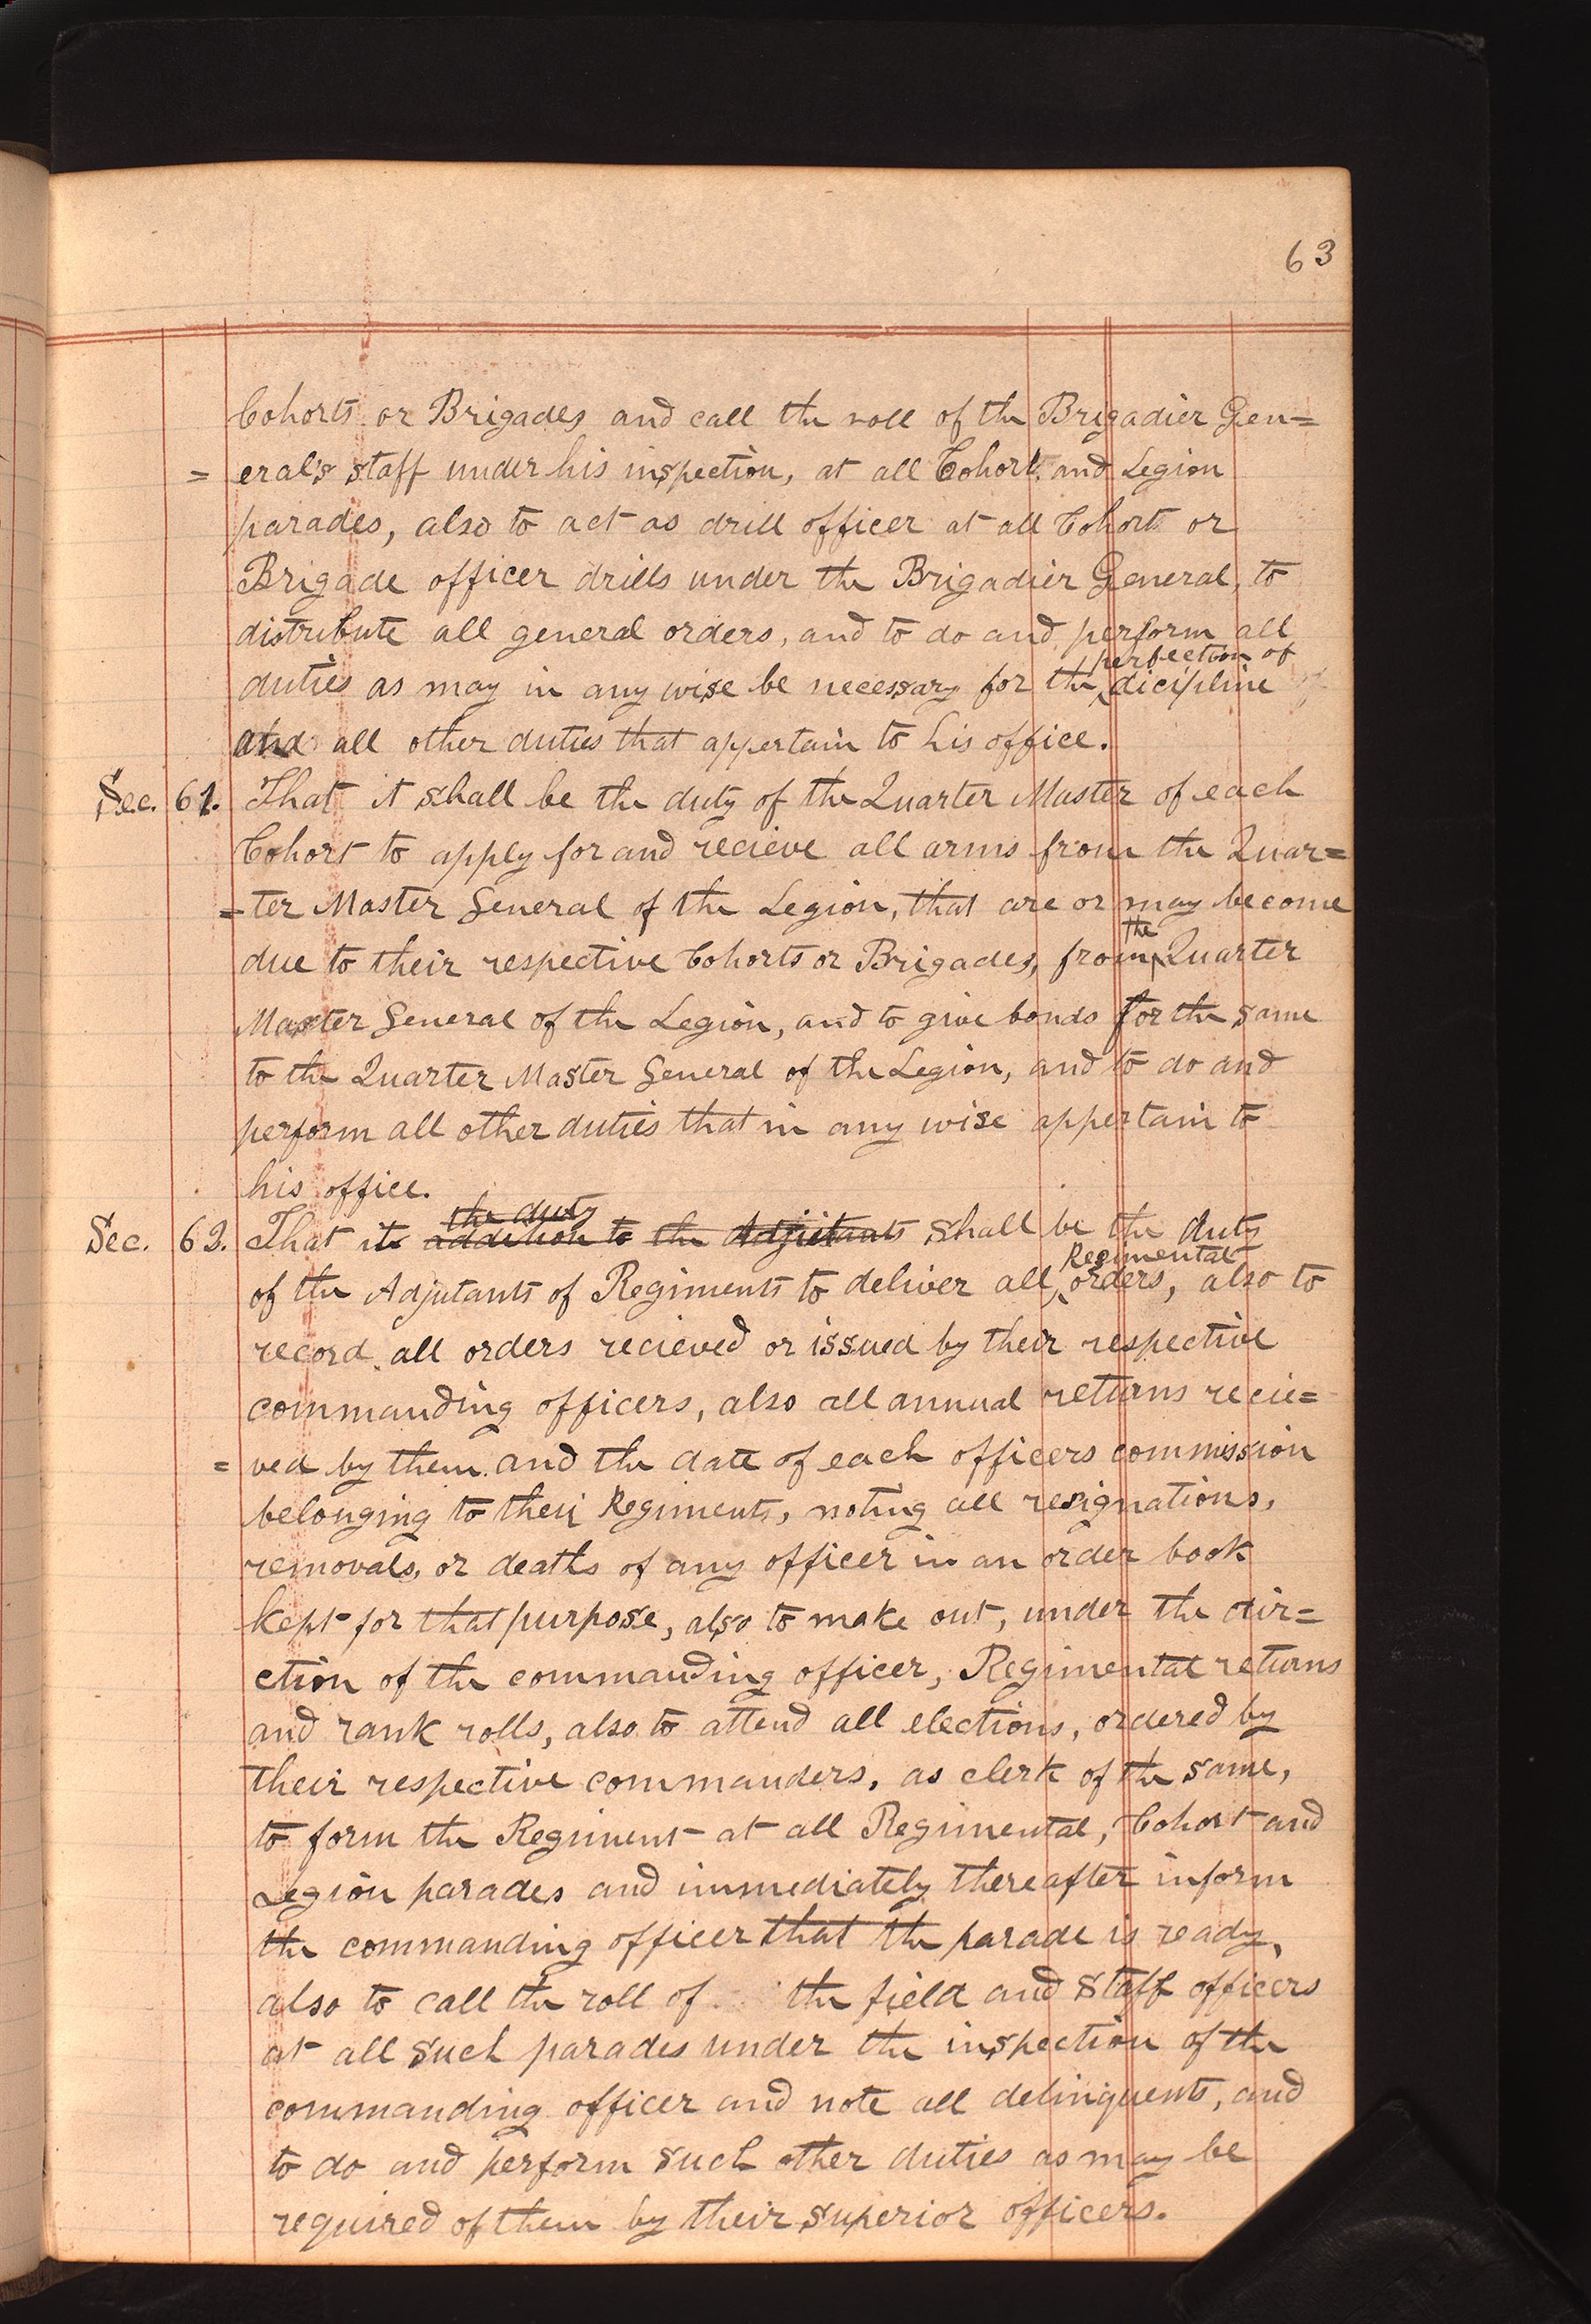 63
Cohorts or Brigades and call the roll of the Brigadier Gen=
= eral's staff under his inspection, at all Cohort and Legion
parades, also to act as drill officer at all Cohort or
Brigade officer drills under the Brigadier General, to
distribute all general orders, and to do and perform all
perfection of
duties as may in any wise be necessary for the dicipline
and all other duties that appertain to his office.
Sec. 61. That it shall be the duty of the Quarter Master of each
Cohort to apply for and recieve all arms from the Quar=
=ter Master General of the Legion, that are or may become
the
due to their respective Cohorts or Brigades, from Quarter
Master General of the Legion, and to give bonds for the same
to the Quarter Master General of the Legion, and to do and
perform all other duties that in any wise appertain to
his office.
the duty
Sec. 62. That it addition to the Adjutants shall be the duty
Regimental
of the Adjutants of Regiments to deliver all orders, also to
record all orders recieved or issued by their respective
commanding officers, also all annual returns recie=
= ved by them and the date of each officers commission
belonging to their Regiments, noting all resignations,
removals, or deaths of any officer in an order book
kept for that purpose, also to make out, under the dir=
ction of the commanding officer, Regimental returns
and rank rolls, also to attend all elections, ordered by
their respective commanders, as clerk of the same,
to form the Regiment at all Regimental, Cohort and
Legion parades and immediately thereafter inform
the commanding officer that the parade is ready,
also to call the roll of the field and staff officers
at all such parades under the inspection of the
commanding officer and note all delinquents, and
to do and perform such other duties as may be
required of them by their superior officers.